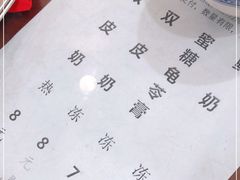 付，数量有限，
皮奶热8
双皮奶冻8元
蜜糖龟苓膏冻7
奶冻